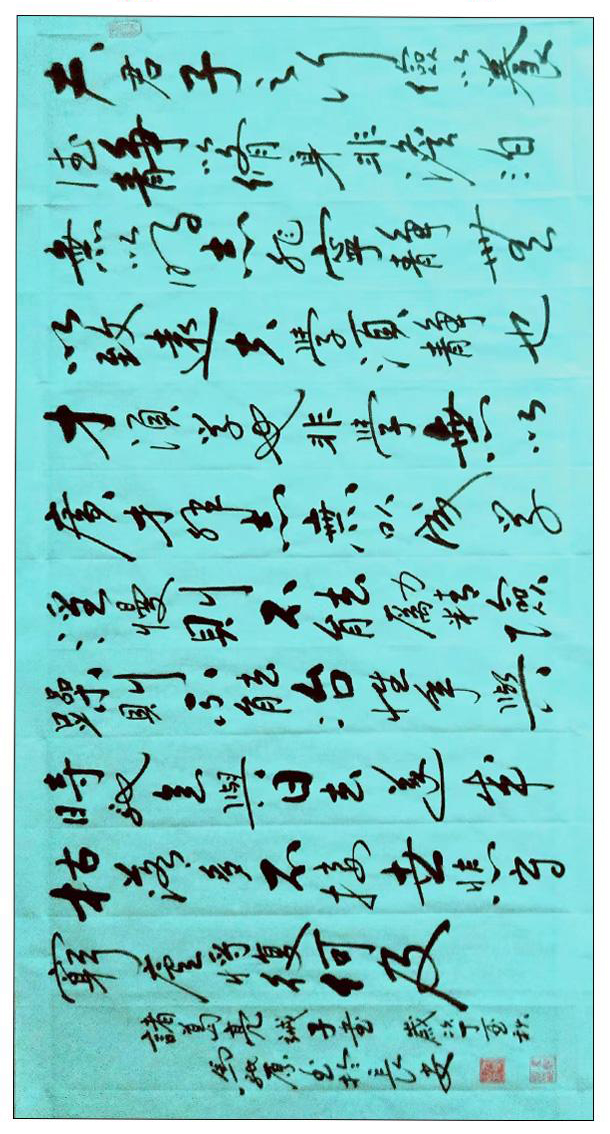 夫君子之行儉以養
德静以脩身非澹泊
無以明志非寧静無
以致遠夫學須静也
才須學也非學無以
廣才非志無以成學
淫慢則不能勵精險
躁則不能治性年與
時馳意與日去遂成
枯落多不接世悲守
窮廬將復何及
諸葛亮誡子書 歲次丁酉秋
馬原書於長安